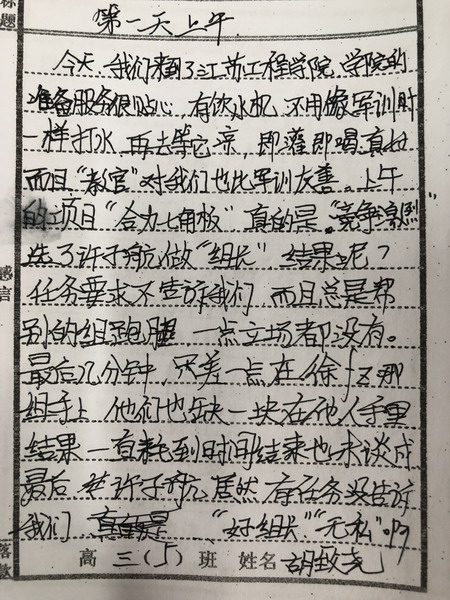 标题
第一天上午
今天,我们来到了江苏工程学院,学院的
准备服务很贴心,有饮水机,不用像军训时
一样打水,再去等它凉,即灌即喝真好
而且“教官”对我们也比军训友善。上午
的项目“合力七角板”真的是“竞争激烈”
选了许子航做“组长”,结果呢?
任务要求不告诉我们,而且总是帮
别的组跑腿,一点立场都没有。
最后几分钟,只差一点在徐 那
组手上,他们也缺一块在他人手里
结果一直耗到时间结束也未谈成
最后 许子航居然有任务没告诉
我们 真的是 “好组长”“无私”啊
感言
落款
高三(5)班 姓名 胡致尧